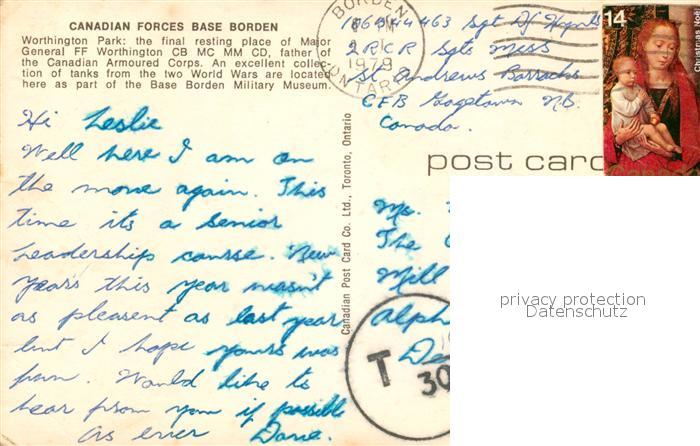 CANADIAN FORCES BASE BORDEN
Worthington Park: the final resting place of Major
General FF Worthington CB MC MM CD, father of
the Canadian Armoured Corps. An excellent collec-
tion of tanks from the two World Wars are located
here as part of the Base Borden Military Museum.
Hi Leslie
Well here I am on
the move again. This
time its a senior
Leadership course. New
years this year wasn't
as pleasent as last year
but I hope yours was
fun. Would like to
hear from you if possible
As ever Dave.
Canadian Post Card Co. Ltd., Toronto, Ontario
BORDEN
1979
ONTARIO
Sgt
2RCR Sgts Mess
St. Andrews Barracks
CFB Gagetown N.B.
Canada.
14
Christmas Noël
post card
Ms.
The
Mill
alph
De
T
30
privacy protection
Datenschutz